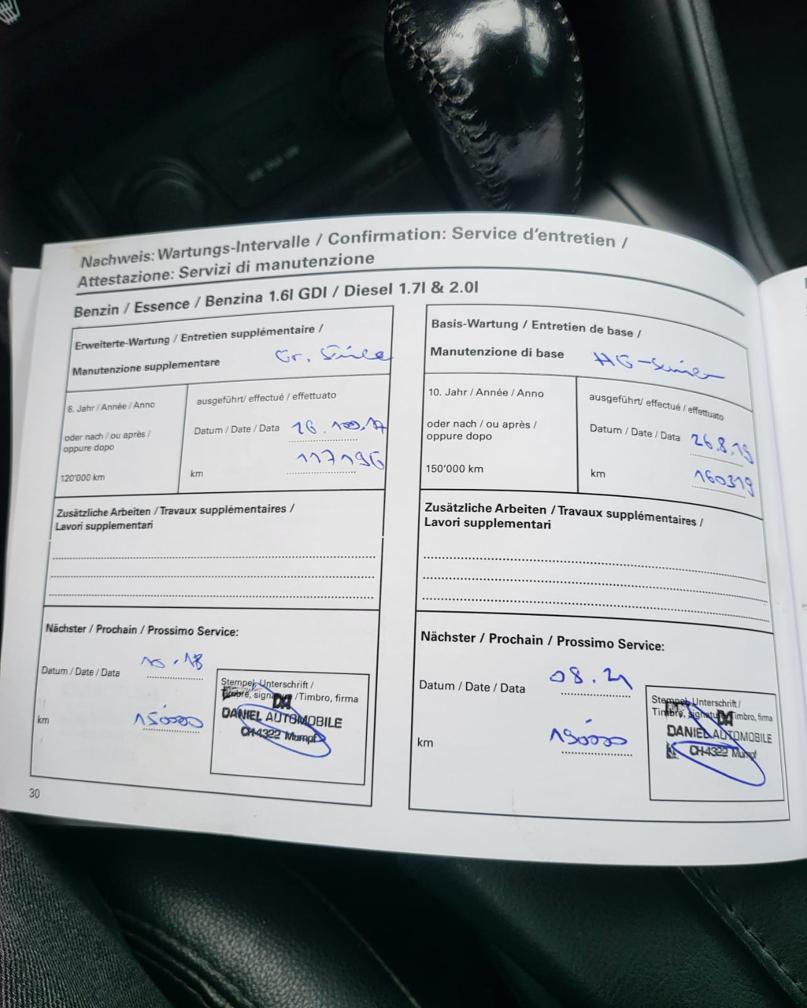 Nachweis: Wartungs-Intervalle / Confirmation: Service d'entretien /
Attestazione: Servizi di manutenzione
Benzin / Essence / Benzina 1.6l GDI / Diesel 1.7l & 2.0l
Erweiterte-Wartung / Entretien supplémentaire /
Manutenzione supplementare Gr.
8. Jahr / Année / Anno
oder nach / ou après /
oppure dopo
120'000 km
ausgeführt/ effectué / effettuato
Datum / Date / Data
km 117196
Zusätzliche Arbeiten / Travaux supplémentaires /
Lavori supplementari
Nächster / Prochain / Prossimo Service:
Datum / Date / Data 10.18
km 150000
Stempel, Unterschrift /
Timbre, signature / Timbro, firma
DA
DANIEL AUTOMOBILE
CH-4322 Mumpf
30
Basis-Wartung / Entretien de base /
Manutenzione di base
10. Jahr / Année / Anno
oder nach / ou après /
oppure dopo
150'000 km
ausgeführt/ effectué / effettuato
Datum / Date / Data 26.8.19
km 160319
Zusätzliche Arbeiten / Travaux supplémentaires /
Lavori supplementari
Nächster / Prochain / Prossimo Service:
Datum / Date / Data 08.21
km 190000
Stempel, Unterschrift /
Timbre, signature / Timbro, firma
DA
DANIEL AUTOMOBILE
CH-4322 Mumpf